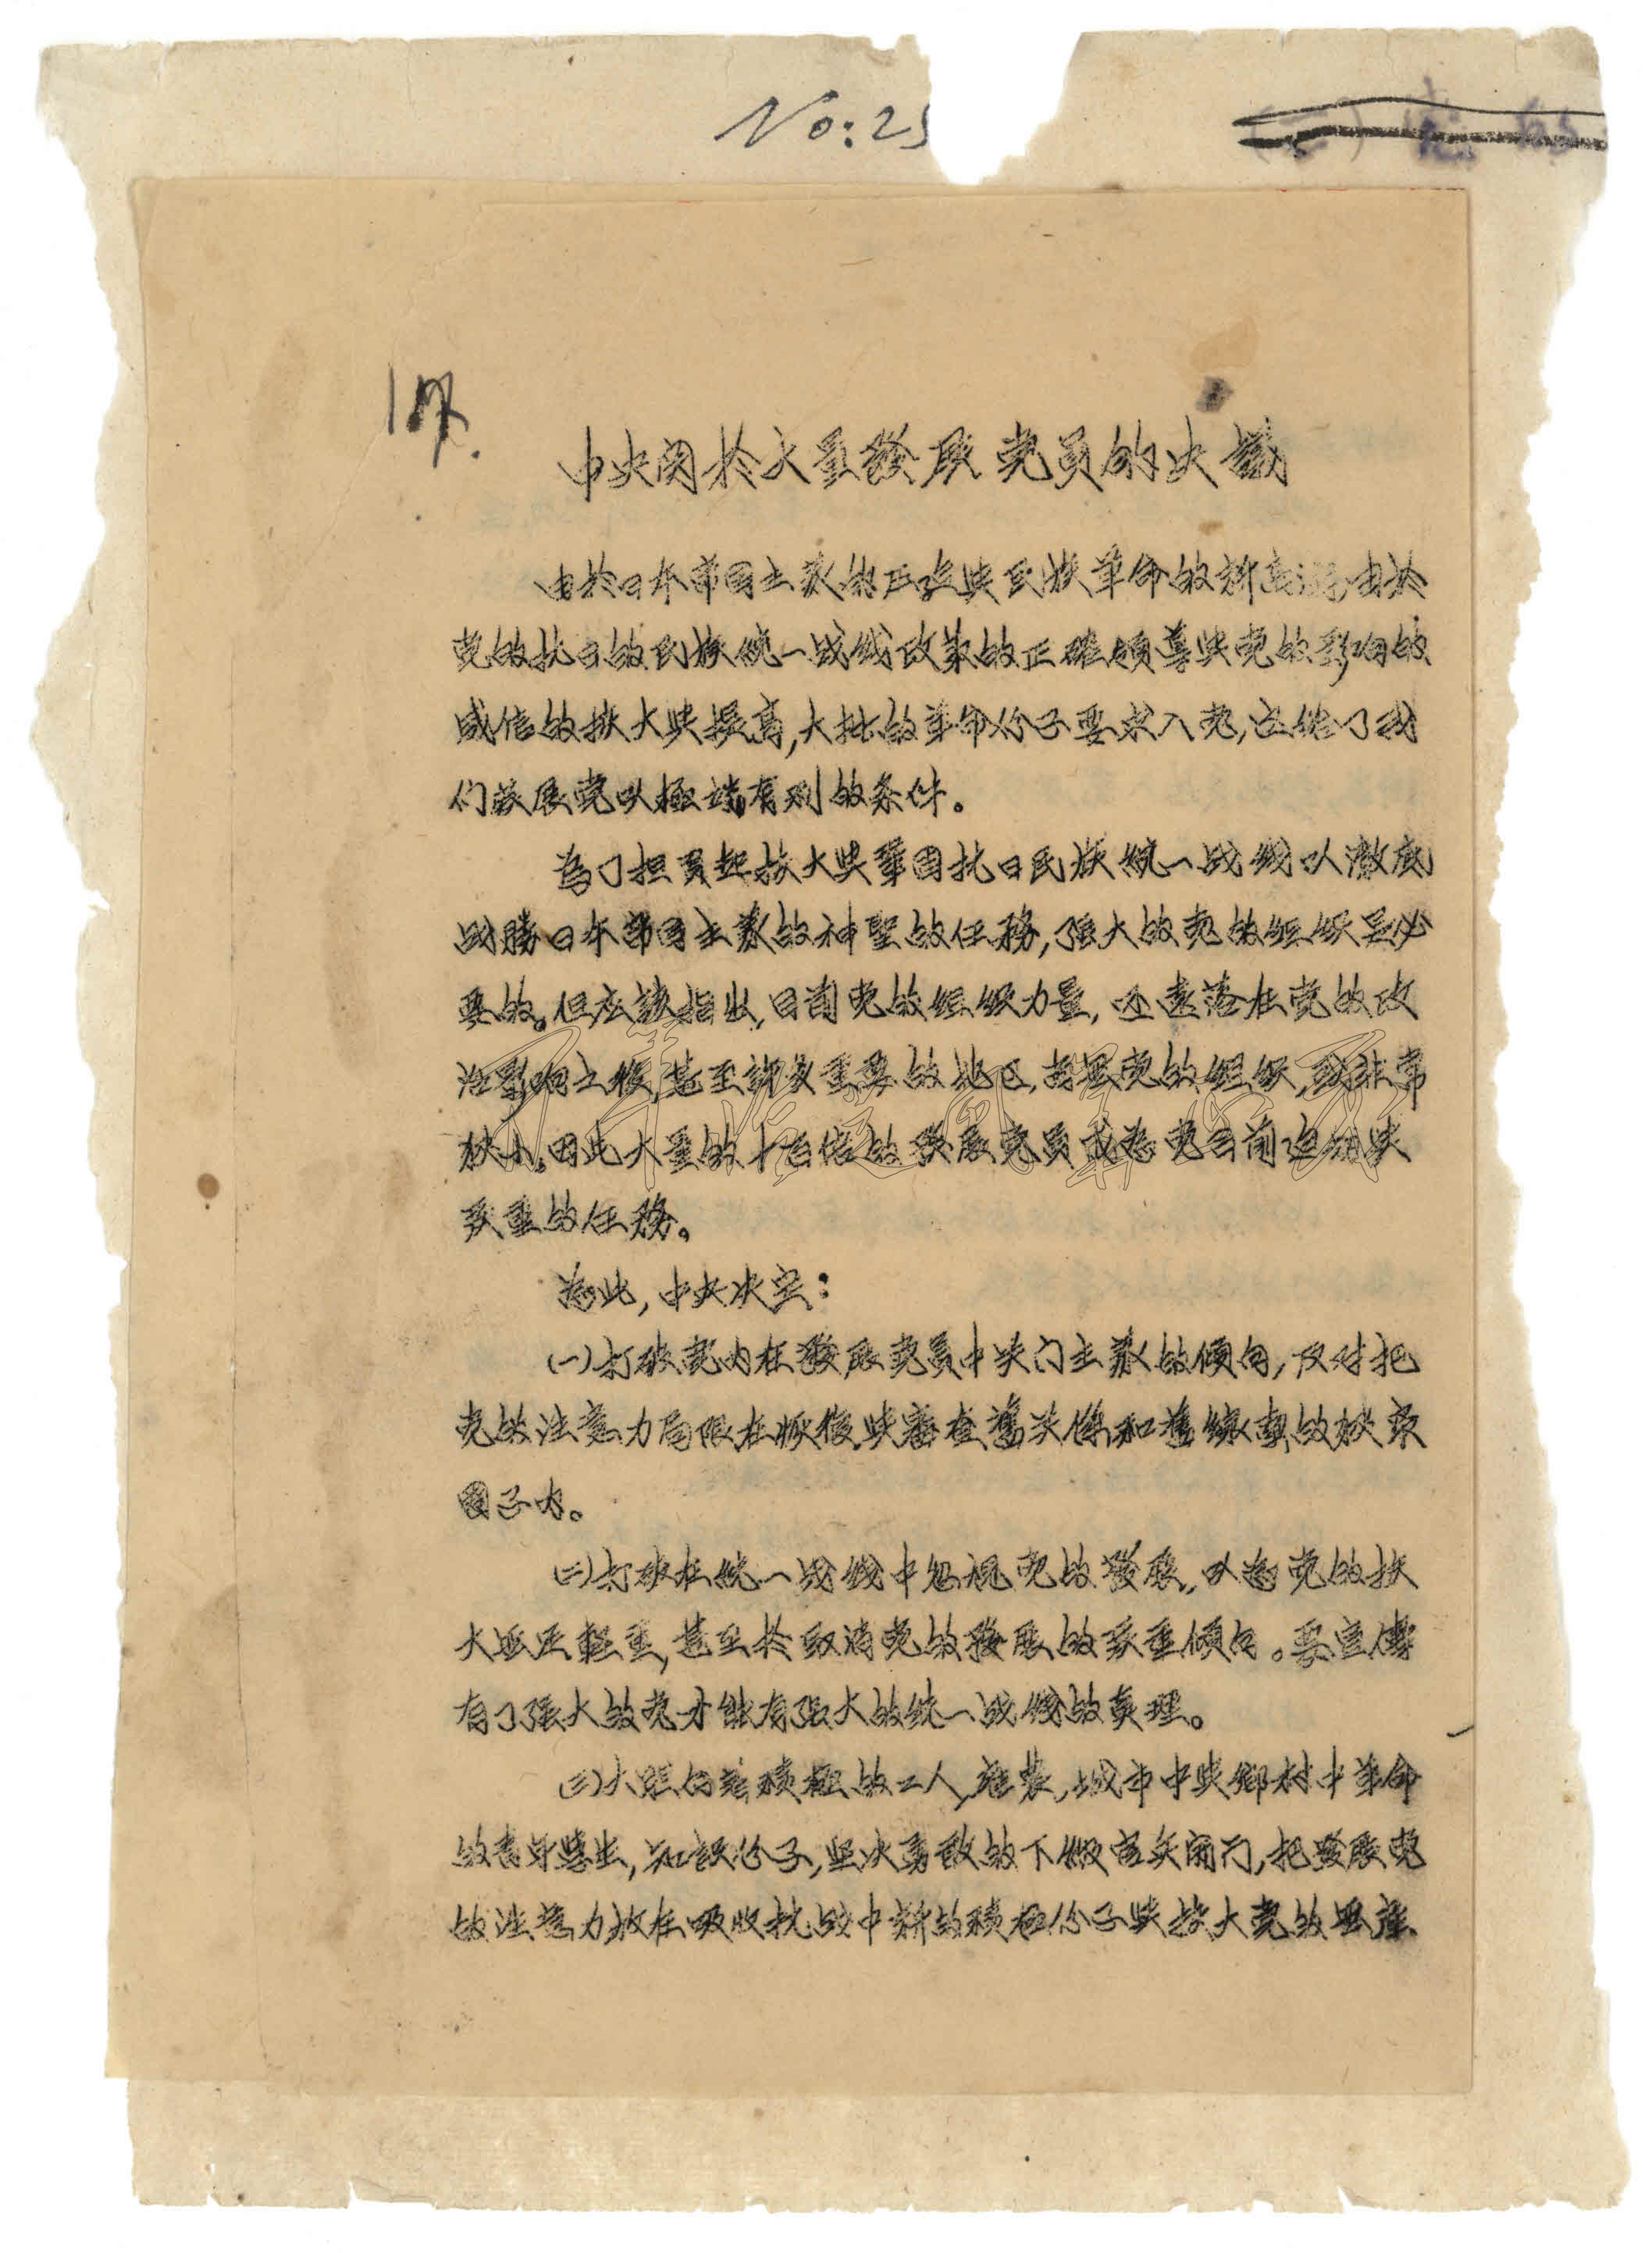 No: 25
中央関於大量發展党员的决議
由於日本帝国主義的压迫与民族革命的新高涨,由於
党的抗日的民族统一战线政策的正確领导与党的影响的
威信的扩大与提高,大批的革命份子要求入党,这给了我
们發展党以極端有利的条件。
為了担負起扩大与鞏固抗日民族统一战线以澈底
战勝日本帝国主義的神聖的任務,强大的党的组织是必
要的。但应該指出,目前党的组织力量,还遠落在党的政
治影响之後,甚至許多重要的地区,尚無党的组织,或非常
狹小,因此大量的十百倍的發展党员成為党目前迫切与
严重的任務。
為此,中央决定:
(一)打破党内在發展党员中关门主義的倾向,反对把
党的注意力局限在恢復与審查舊关係和舊線索的狹窄
圈子内。
(二)打破在统一战线中忽視党的發展,以為党的扩
大無足輕重,甚至於取消党的發展的严重倾向。要宣傳
有了强大的党才能有强大的统一战线的真理。
(三)大胆向着積極的工人,雇農,城市中与鄉村中革命
的青年學生,知識份子,坚决勇敢的下級官兵開门,把發展党
的注意力放在吸收抗战中新的積極份子与扩大党的無産